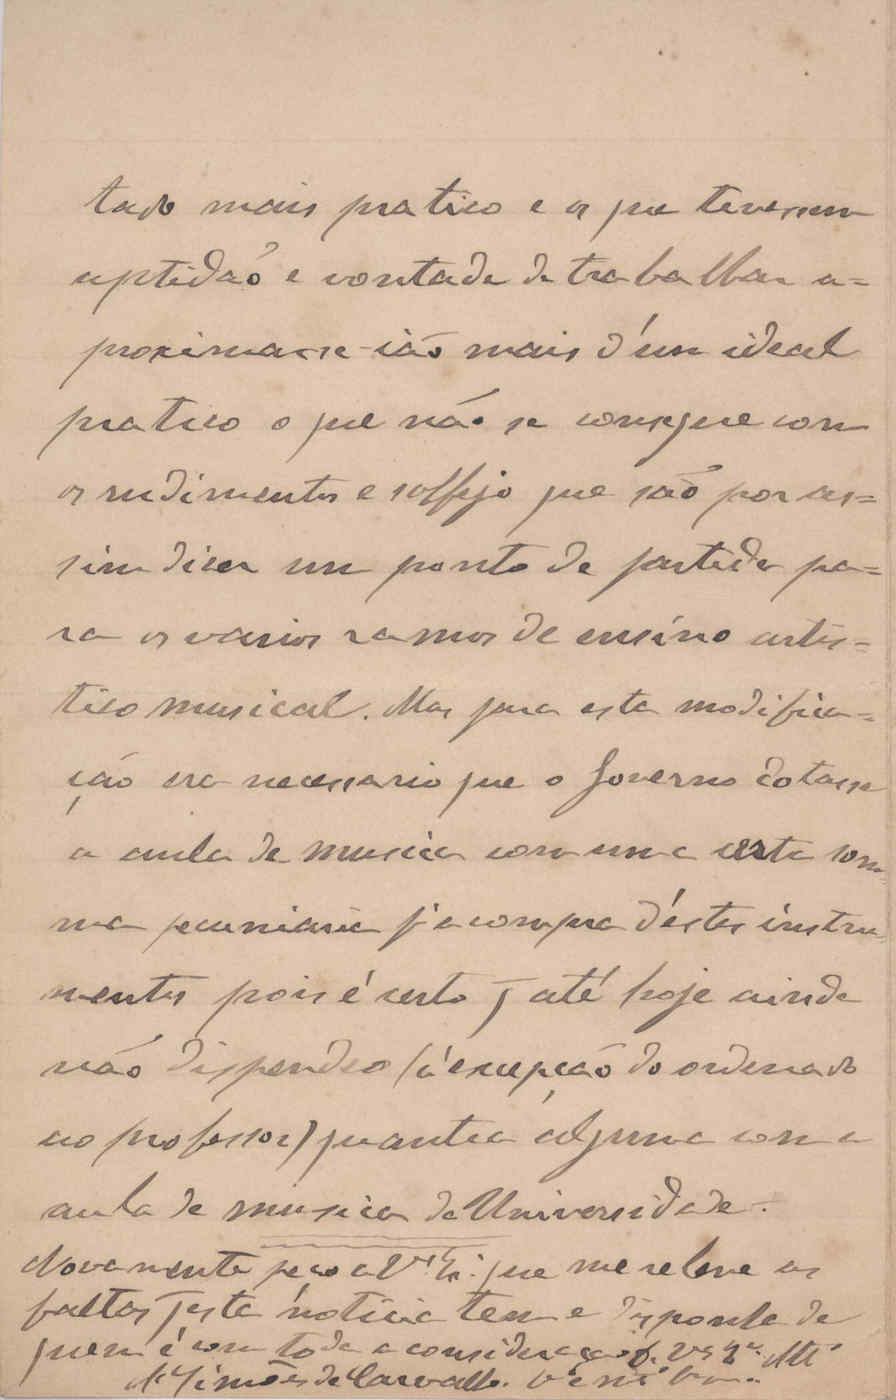 tado mais pratico e os que tivessem
aptidão e vontade de trabalhar a=
proximar-se-ião mais d'um ideal
pratico o que não se consegue com
os rudimentos e solfejo que são por as=
sim dizer um ponto de partida pa=
ra os varios ramos de ensino artis=
tico musical. Mas para esta modifica=
ção era necessario que o Governo dotasse
a aula de musica com uma certa som=
ma pecuniaria p'a compra d'estes instru=
mentos pois é certo q até hoje ainda
não dispendeo (á excepção do ordenado
ao professor) quantia alguma com a
aula de musica da Universidade.
Novamente peço a V. que me releve as
faltas q esta noticia tem e disponha de
quem é com toda a consideração de V.
Simões de Carvalho.